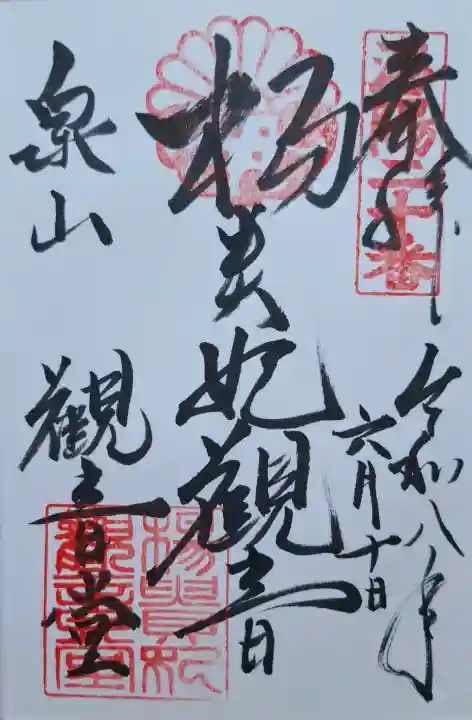 奉拝
令和八年
六月十日
楊貴妃観音
泉山
観音堂
洛陽二十番
楊貴妃
観音堂